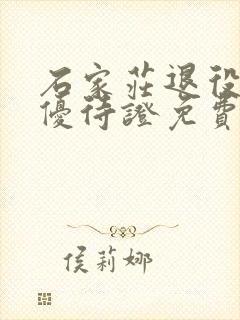 石家莊退役
優待證免費
侯莉娜